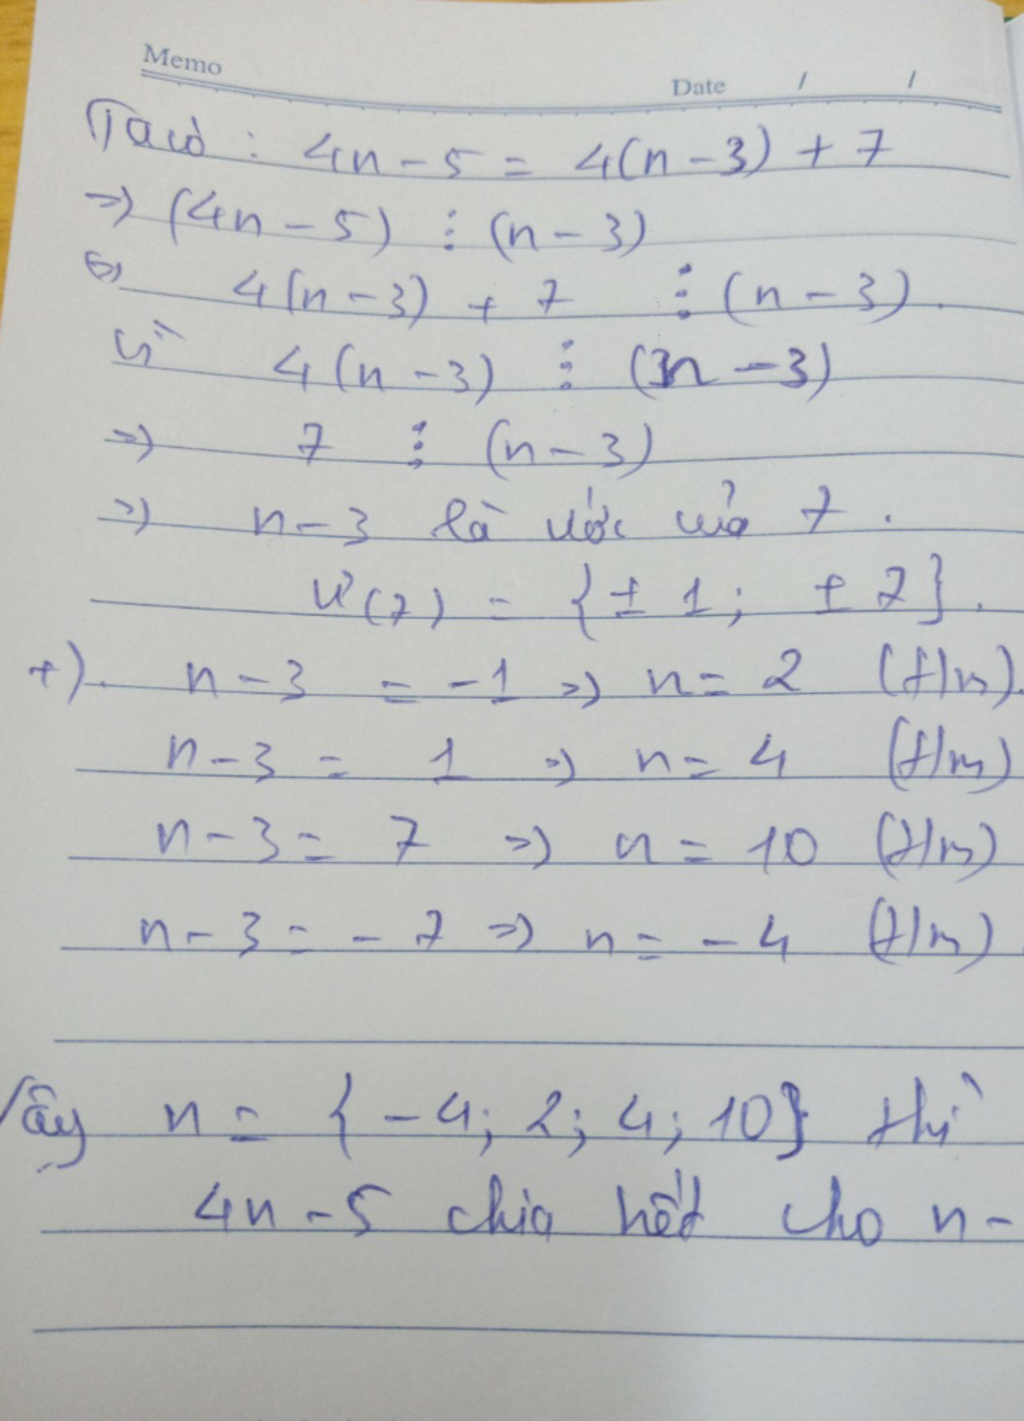 Memo
Date / /
Ta có : 4n - 5 = 4(n - 3) + 7
=> (4n - 5) ⋮ (n - 3)
4(n - 3) + 7 ⋮ (n - 3).
Vì 4(n - 3) ⋮ (n - 3)
=> 7 ⋮ (n - 3)
=> n - 3 là ước của 7.
Ư(7) = {± 1; ± 7}.
+). n - 3 = -1 => n = 2 (t/m).
n - 3 = 1 => n = 4 (t/m)
n - 3 = 7 => n = 10 (t/m)
n - 3 = - 7 => n = - 4 (t/m)
Vậy n = {-4; 2; 4; 10} thì
4n - 5 chia hết cho n -